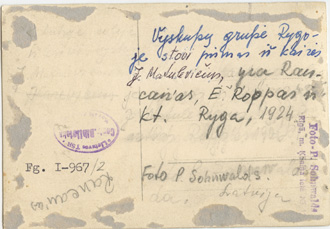 Vyskupų grupė Rygo-
je stovi pirmas iš kairės
J. Matulevičius, yra Ran-
canas, E. Roppas ir
kt. Ryga, 1924.
Fg. I-967/2
Foto P. Sohnwalds
Rancanas
Latvija
Foto-P. Sohnwalds